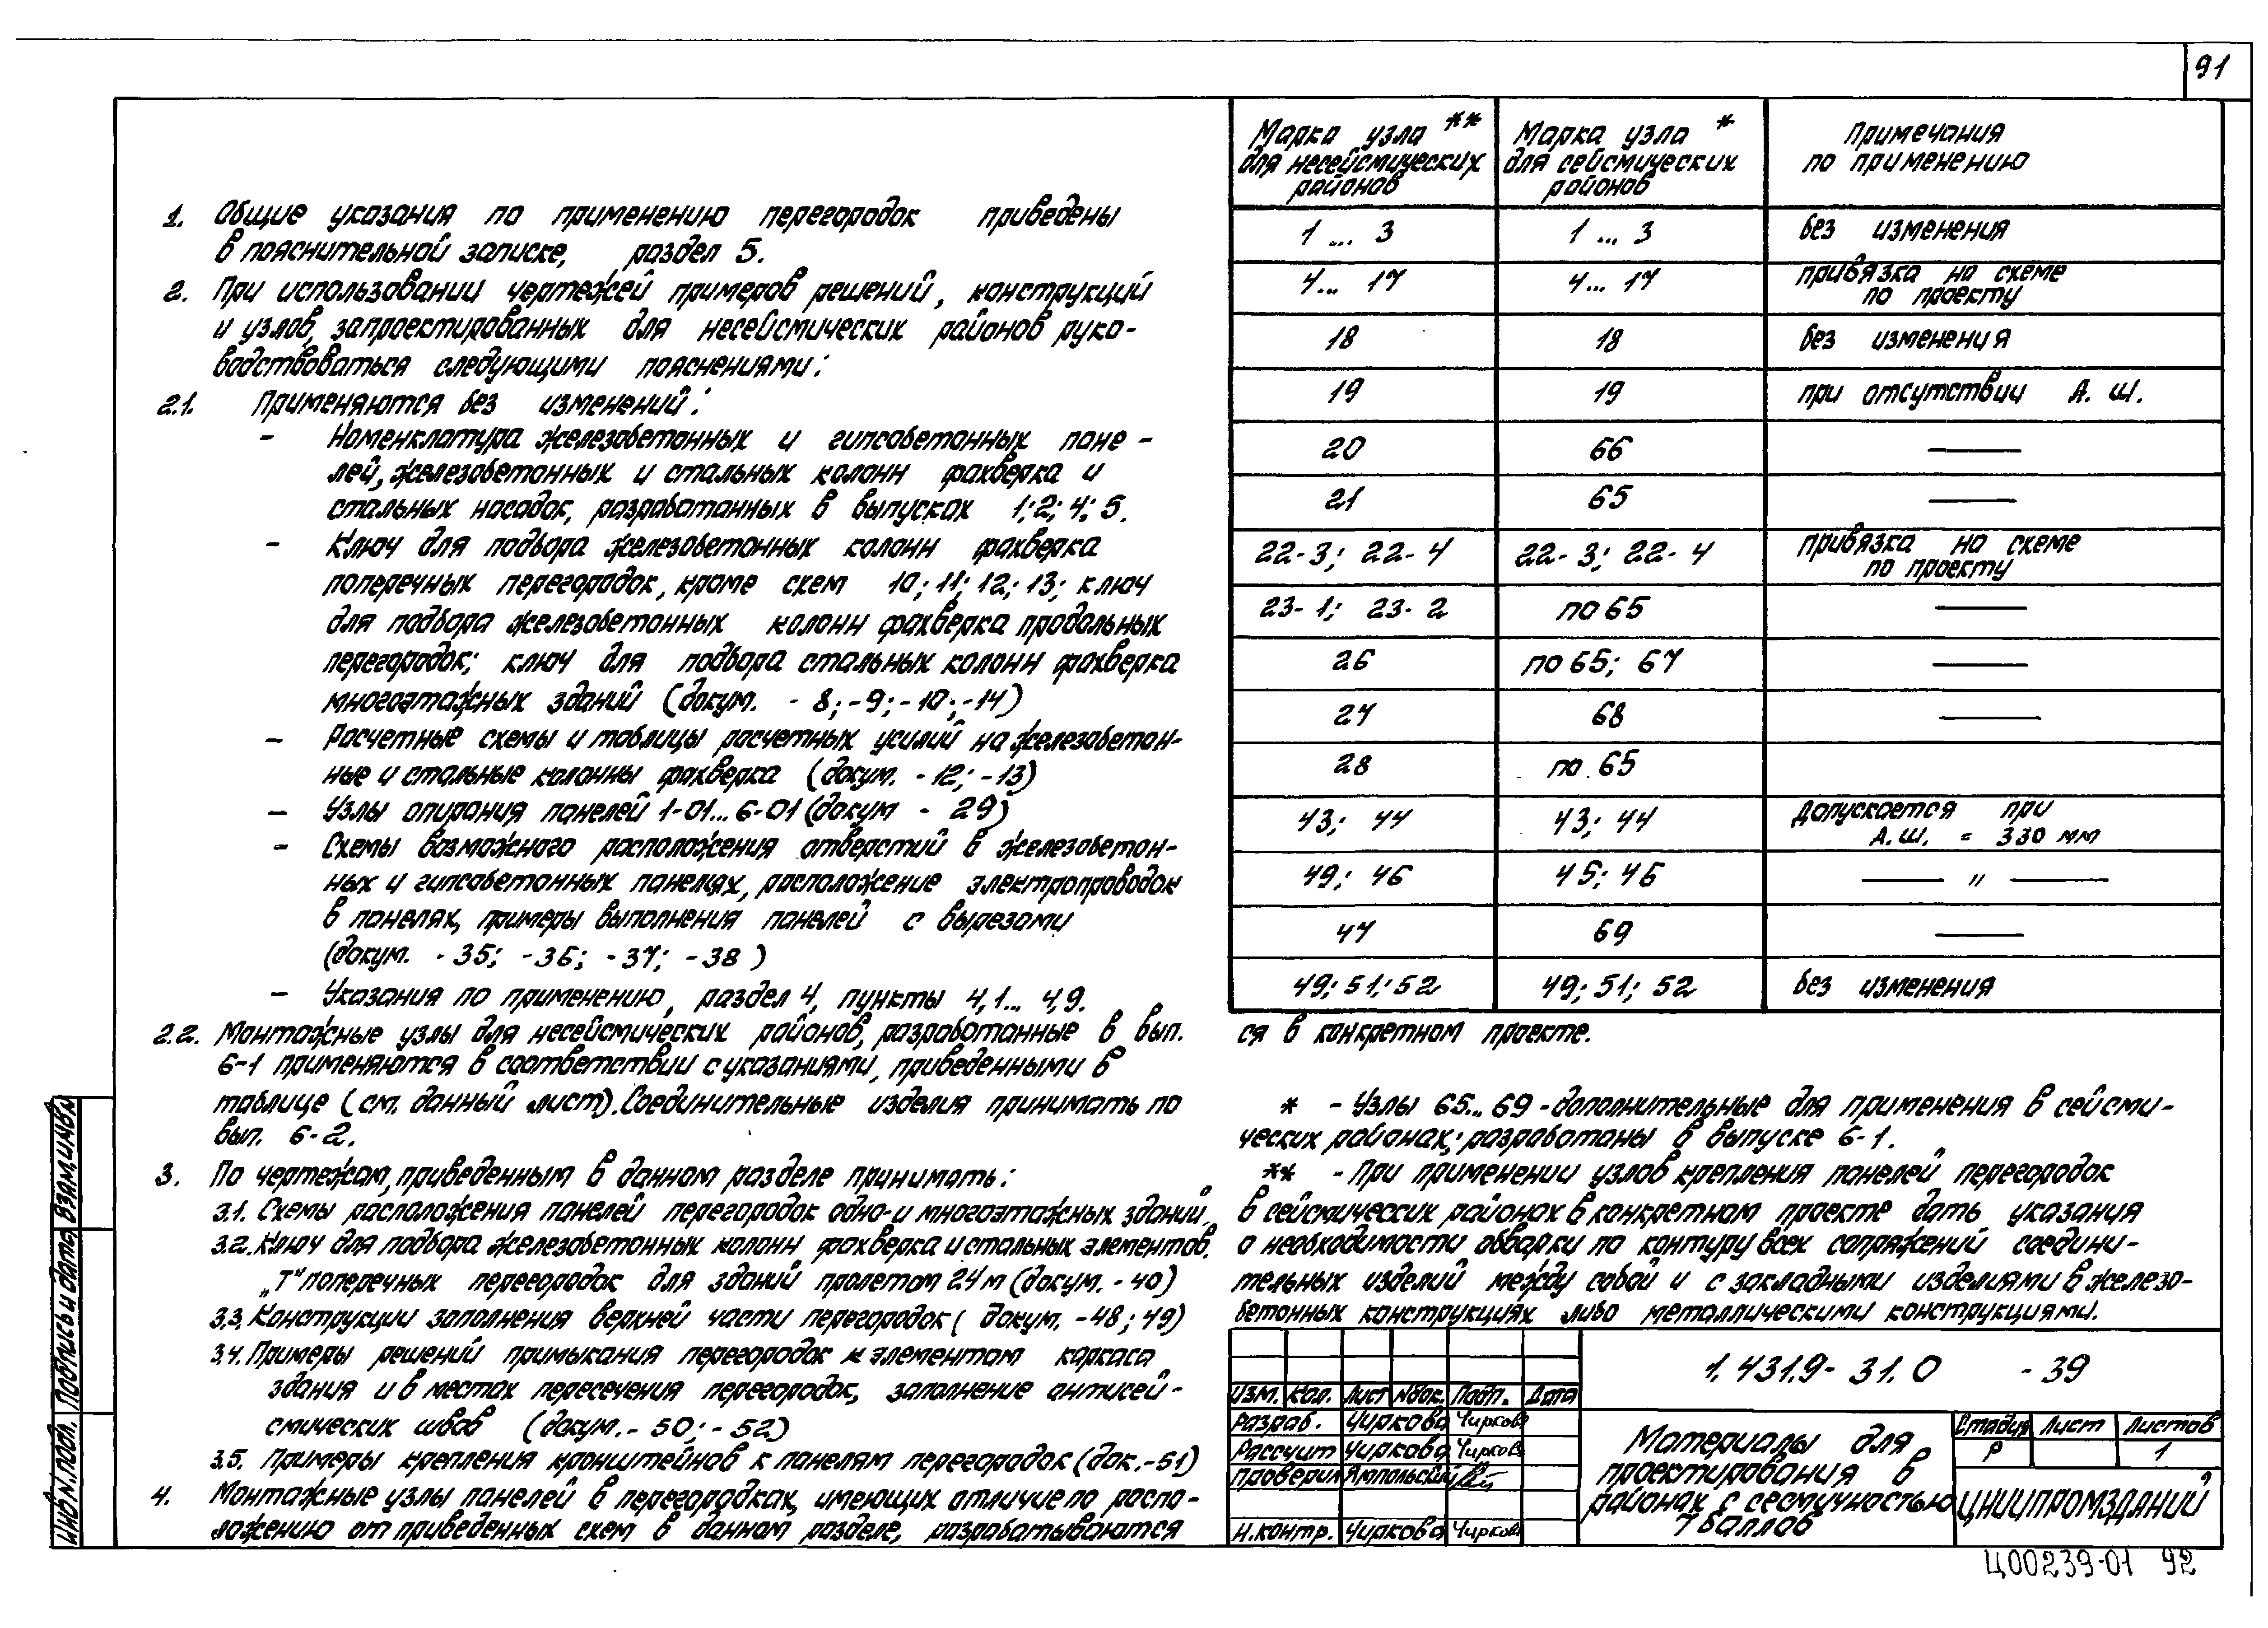 91
1. Общие указания по применению перегородок приведены
в пояснительной записке, раздел 5.
2. При использовании чертежей примеров решений, конструкций
и узлов, запроектированных для несейсмических районов руко-
водствоваться следующими пояснениями:
2.1. Применяются без изменений:
- Номенклатура железобетонных и гипсобетонных пане-
лей, железобетонных и стальных колонн фахверка и
стальных насадок, разработанных в выпусках 1; 2; 4; 5.
- Ключ для подбора железобетонных колонн фахверка
поперечных перегородок, кроме схем 10; 11; 12; 13; ключ
для подбора железобетонных колонн фахверка продольных
перегородок; ключ для подбора стальных колонн фахверка
многоэтажных зданий (докум. - 8; -9; -10; -14)
- Расчетные схемы и таблицы расчетных усилий на железобетон-
ные и стальные колонны фахверка (докум. -12; -13)
- Узлы опирания панелей 1-01...6-01 (докум - 29)
- Схемы возможного расположения отверстий в железобетон-
ных и гипсобетонных панелях, расположение электропроводок
в панелях, примеры выполнения панелей с вырезами
(докум. -35; -36; -37; -38)
- Указания по применению, раздел 4, пункты 4,1... 4,9.
2.2. Монтажные узлы для несейсмических районов, разработанные в вып.
6-1 применяются в соответствии с указаниями, приведенными в
таблице (см. данный лист). Соединительные изделия принимать по
вып. 6-2.
3. По чертежам, приведенным в данном разделе принимать:
3.1. Схемы расположения панелей перегородок одно- и многоэтажных зданий.
3.2. Ключ для подбора железобетонных колонн фахверка и стальных элементов
„Т" поперечных перегородок для зданий пролетом 24 м (докум. -40)
3.3. Конструкции заполнения верхней части перегородок (докум. -48; 49)
3.4. Примеры решений примыкания перегородок к элементам каркаса
здания и в местах пересечения перегородок, заполнение антисей-
смических швов (докум.- 50; -52)
3.5. Примеры крепления кронштейнов к панелям перегородок (док.-51)
4. Монтажные узлы панелей в перегородках, имеющих отличие по распо-
ложению от приведенных схем в данном разделе, разрабатываются
Марка узла ** для несейсмических районов | Марка узла * для сейсмических районов | Примечания по применению
1 ... 3 | 1 ... 3 | без изменения
4... 17 | 4... 17 | привязка на схеме по проекту
18 | 18 | без изменения
19 | 19 | при отсутствии А. Ш.
20 | 66 | —
21 | 65 | —
22-3; 22-4 | 22-3; 22-4 | привязка на схеме по проекту
23-1; 23-2 | по 65 | —
26 | по 65; 67 | —
27 | 68 | —
28 | по 65
43; 44 | 43; 44 | допускается при А.Ш. = 330 мм
49; 46 | 45; 46 | — " —
47 | 69 | —
49; 51; 52 | 49; 51; 52 | без изменения
ся в конкретном проекте.
* - Узлы 65... 69 - дополнительные для применения в сейсми-
ческих районах; разработаны в выпуске 6-1.
** - При применении узлов крепления панелей перегородок
в сейсмических районах в конкретном проекте дать указания
о необходимости обварки по контуру всех сопряжений соедини-
тельных изделий между собой и с закладными изделиями в железо-
бетонных конструкциях либо металлическими конструкциями.
1.431.9-31.0 -39
Изм. Кол. Лист №док. Подп. Дата
Разраб. Чиркова Чирков
Рассчит Чиркова Чирков
Проверил Ямпольский
Н.контр. Чиркова Чирков
Материалы для
проектирования в
районах с сесмичностью
7 баллов
Стадия Лист Листов
Р 1
ЦНИИПРОМЗДАНИЙ
Инв N. подл. Подпись и дата Взам.инв.N
Ц00239-01 92